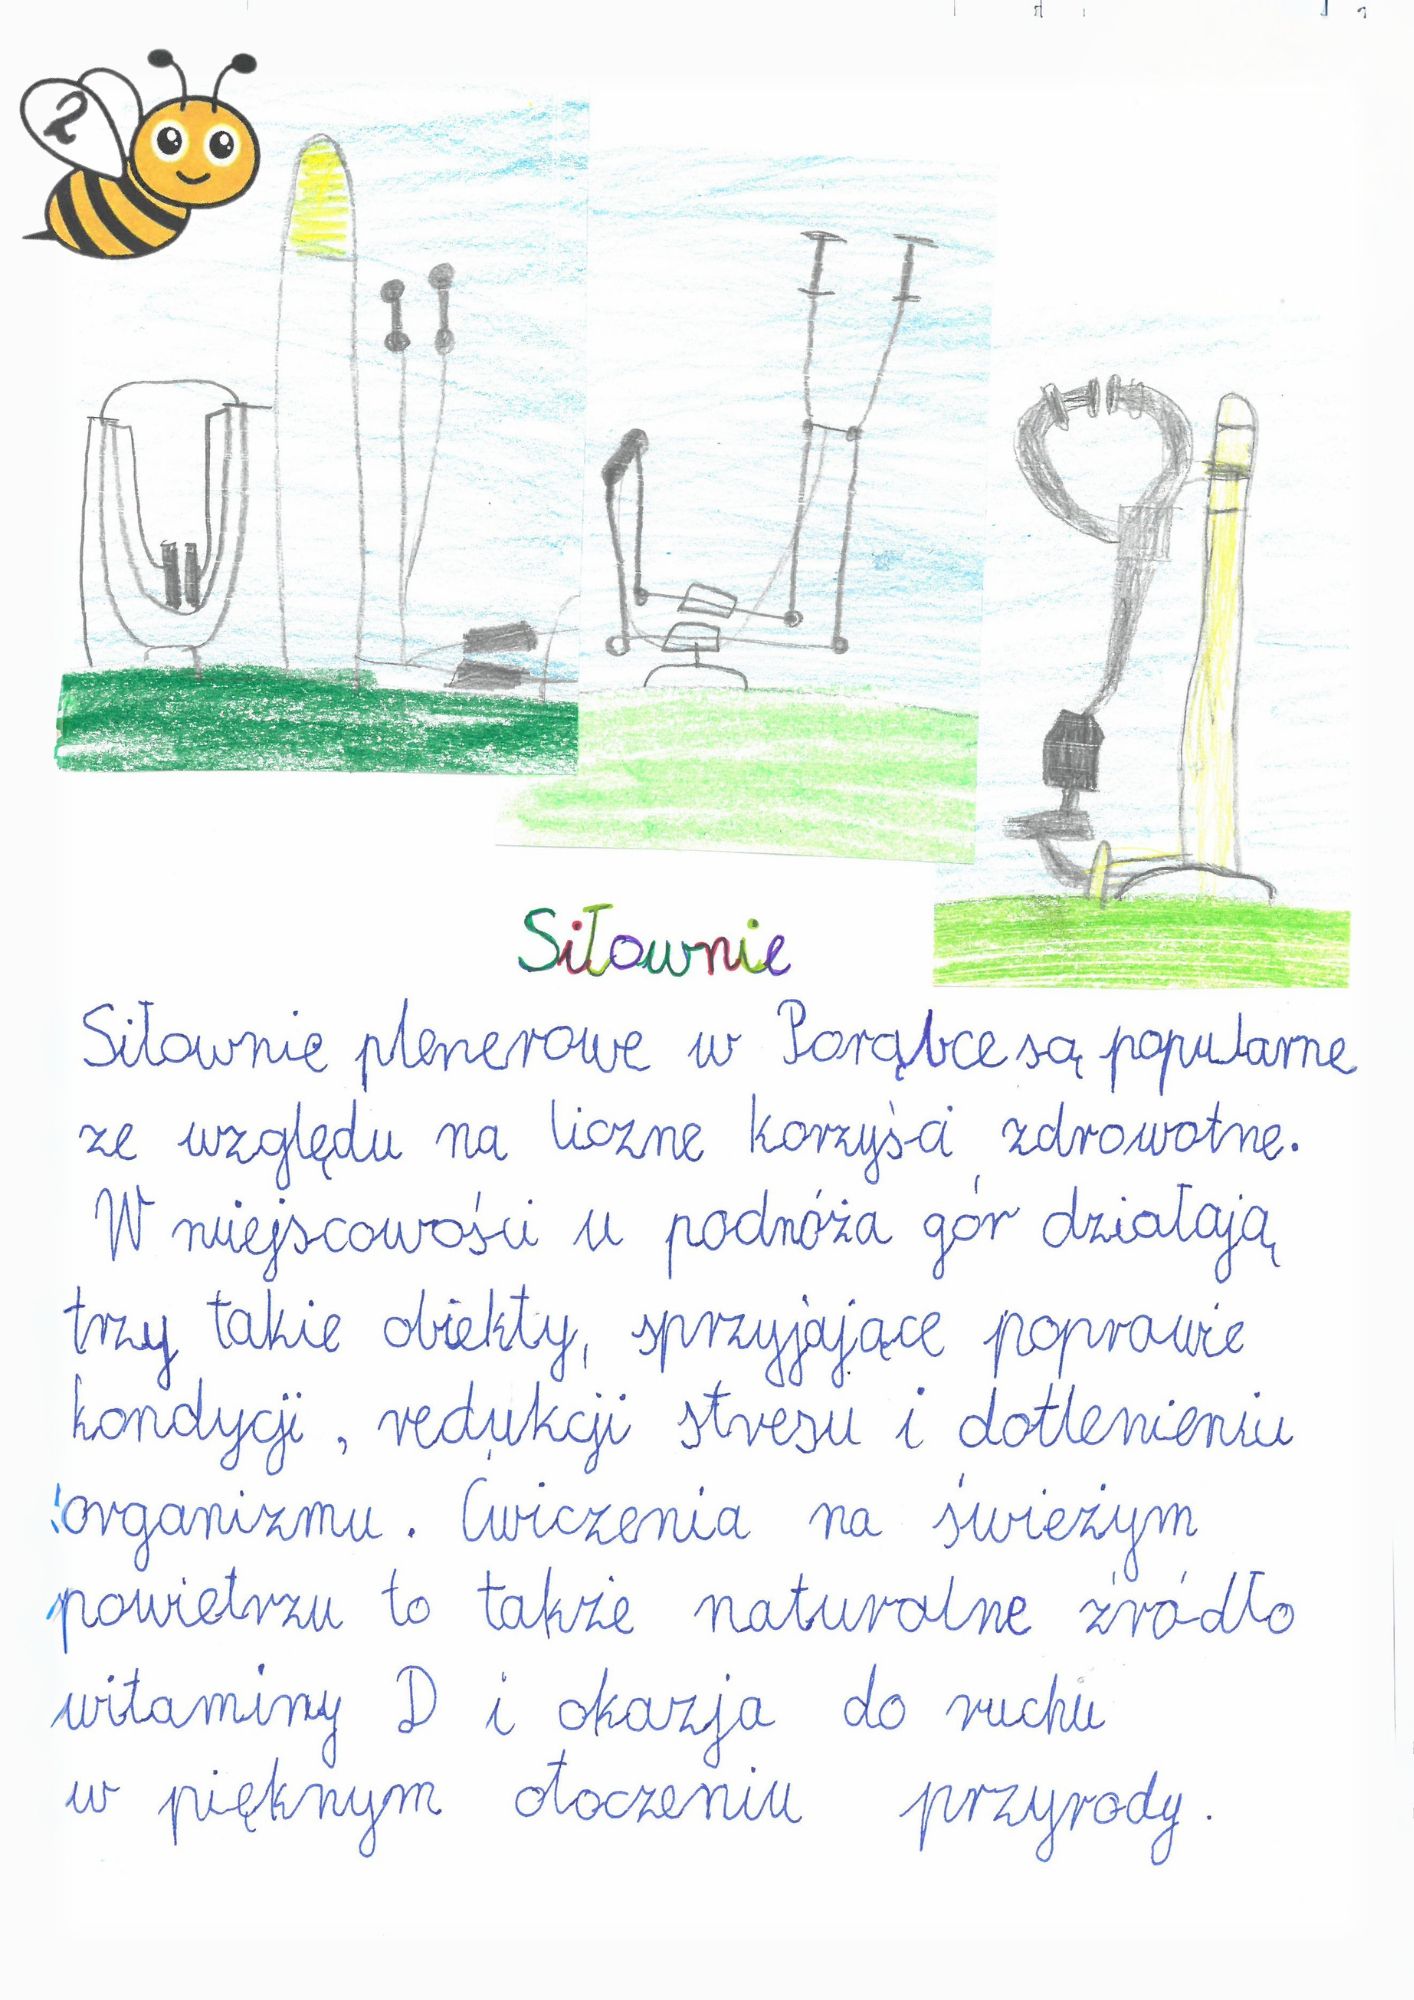 2
Siłownie
Siłownie plenerowe w Porąbce są popularne
ze względu na liczne korzyści zdrowotne.
W miejscowości u podnóża gór działają
trzy takie obiekty, sprzyjające poprawie
kondycji, redukcji stresu i dotlenieniu
organizmu. Ćwiczenia na świeżym
powietrzu to także naturalne źródło
witaminy D i okazja do ruchu
w pięknym otoczeniu przyrody.